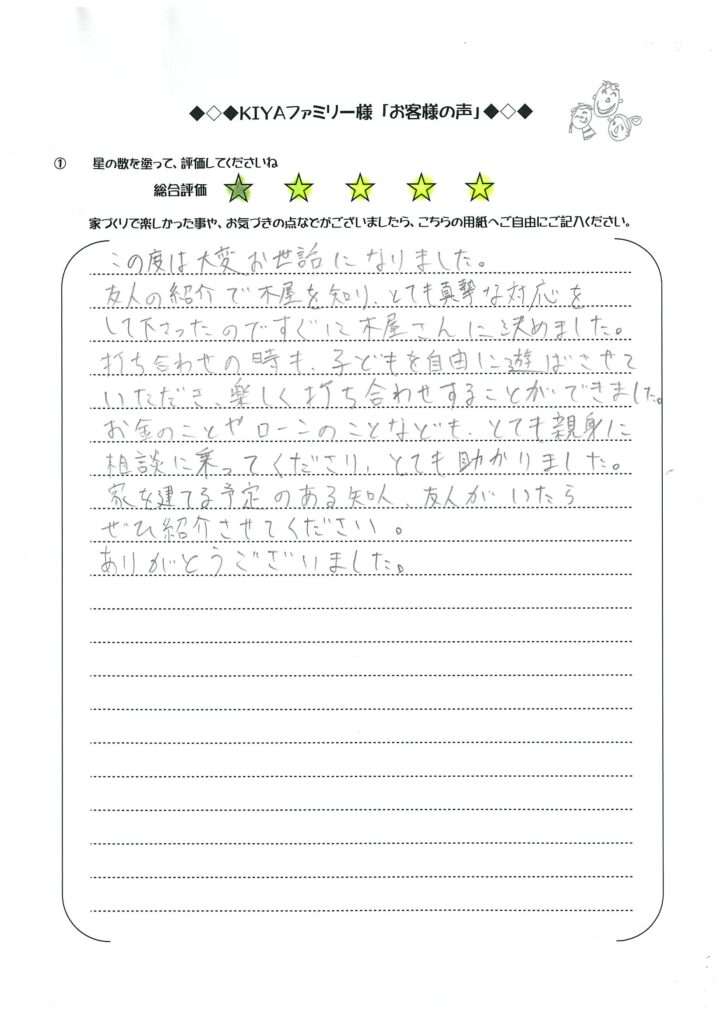 ◆◇◆KIYAファミリー様「お客様の声」◆◇◆
① 星の数を塗って、評価してくださいね
総合評価 ★ ★ ★ ★ ★
家づくりで楽しかった事や、お気づきの点などがございましたら、こちらの用紙へご自由にご記入ください。
この度は大変お世話になりました。
友人の紹介で木屋を知り、とても真摯な対応を
して下さったのですぐに木屋さんに決めました。
打ち合わせの時も、子どもを自由に遊ばさせて
いただき、楽しく打ち合わせすることができました。
お金のことやローンのことなども、とても親身に
相談に乗ってくださり、とても助かりました。
家を建てる予定のある知人、友人がいたら
ぜひ紹介させてください。
ありがとうございました。